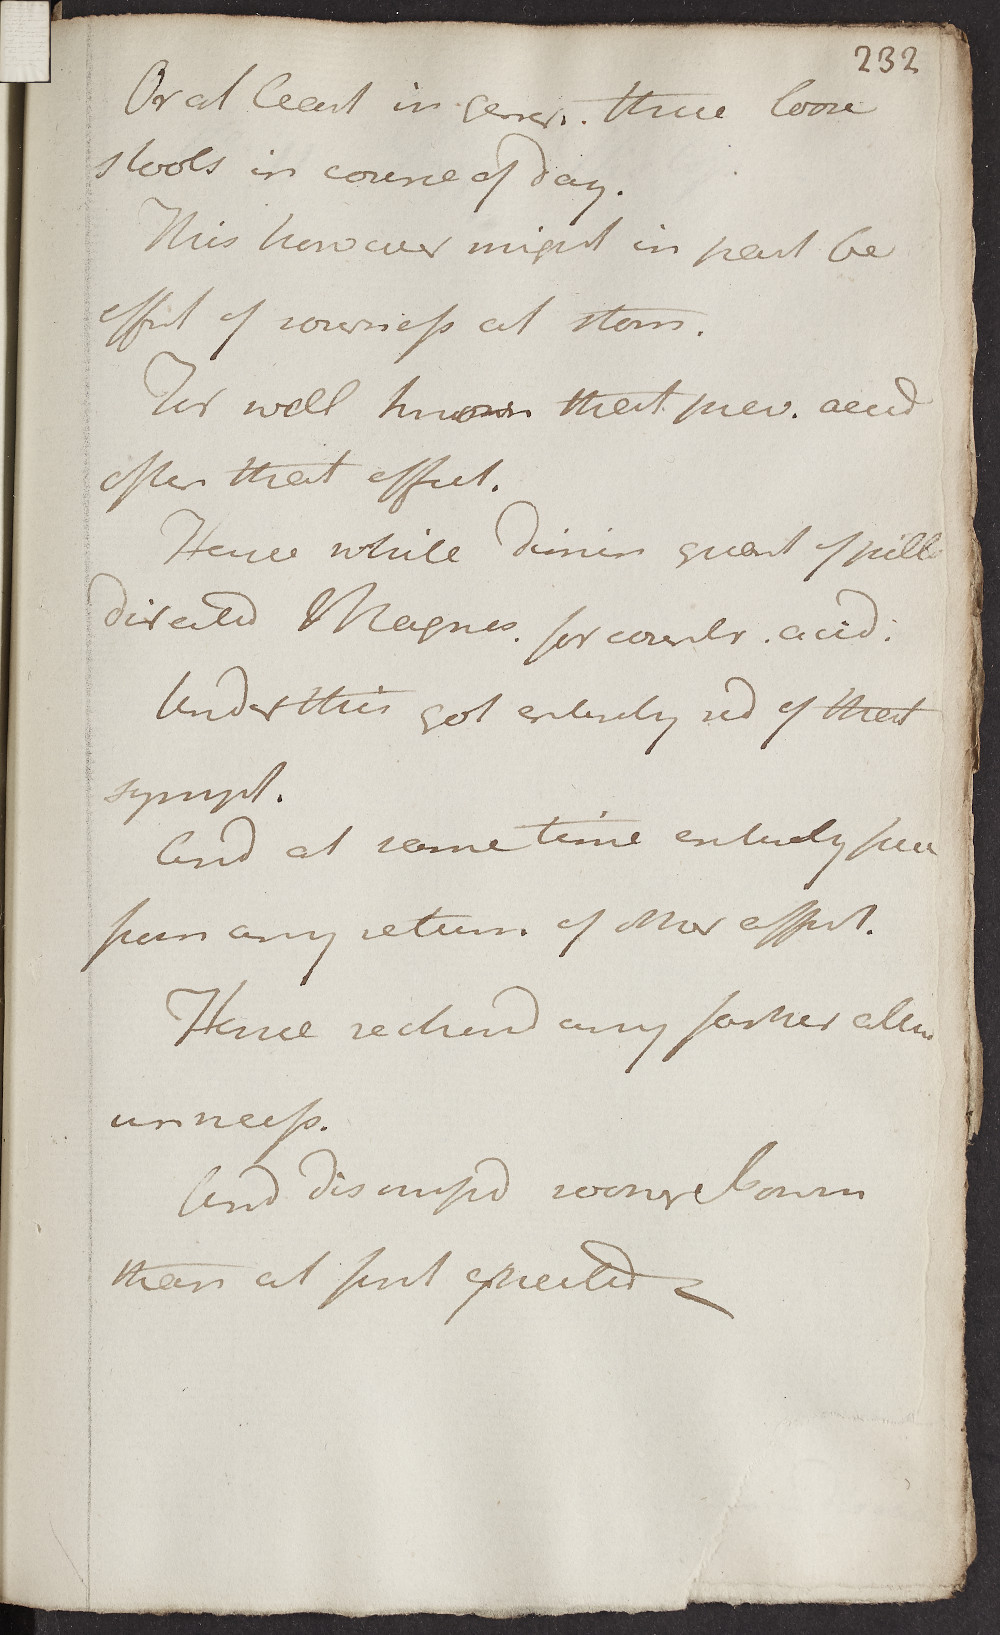 232
Or at least in gener. three loose
stools in course of day.
This however might in part be
effect of sourness at stom.
Tis well known that prev. acid
often that effect.
Hence while dimin quant of pills
directed Magnes. for counter. acid.
Under this got entirely rid of that
sympt.
And at same time entirely free
from any return of other affect.
Hence reckond any farther atten
unnecess.
And dismiss'd sooner home
than at first expected